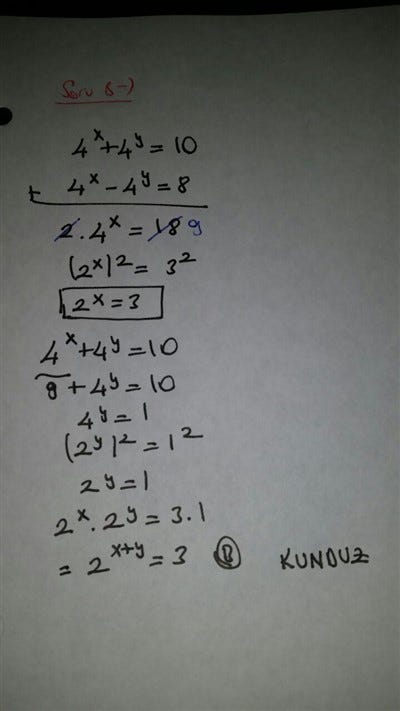 Soru 8-)
4^x+4^y=10
+ 4^x-4^y=8
2.4^x=18 9
(2^x)^2=3^2
2^x=3
4^x+4^y=10
9+4^y=10
4^y=1
(2^y)^2=1^2
2^y=1
2^x.2^y=3.1
=2^x+y=3 B KUNDUZ